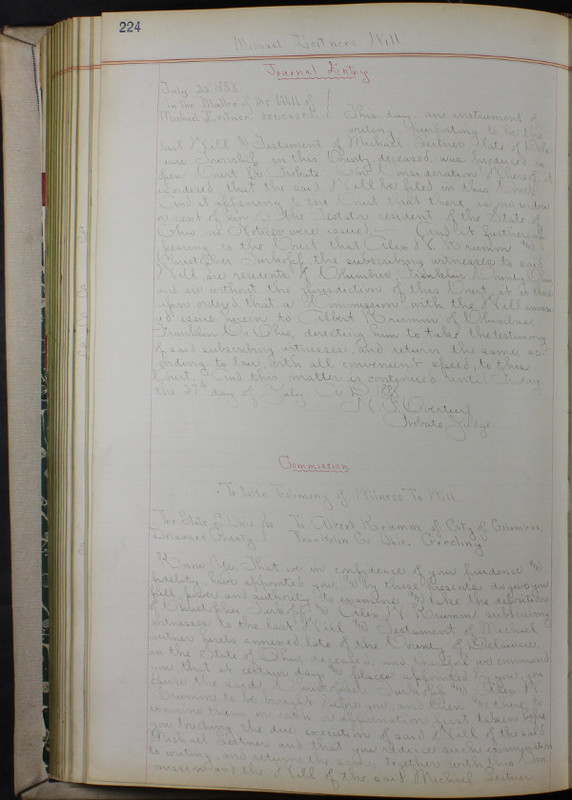 224
Michael Leitners Will
Journal Entry
July 23 1888
In the Matter of the Will of
Michael Leitner deceased
This day an instrument of
writing purporting to be the
last Will & Testament of Michael Leitner late of
ware Township in this County, deceased, was produced in
open Court for Probate. On Consideration Whereof it
is ordered that the said Will be filed in this Court
And it appearing to the Court that there is no widow
or next of kin of the Testator resident of the State of
Ohio no Notices were issued. And it further
pearing to the Court that Alex N. Krumm and
the subscribing witnesses to said
Will, are residents of Columbus Franklin County Ohio
and are without the jurisdiction of this Court, it is
upon ordered that a Commission with the Will annex
ed issue herein to Albert Krumm of Columbus
Franklin Co Ohio, directing him to take the testimony
of said subscribing witnesses, and return the same ac
cording to law, with all convenient speed, to this
Court. And this matter is continued until
the 27th day of July A.D. 1888
Probate Judge
Commission
To take Testimony of Witness To Will
The State of Ohio ss To Albert Krumm of City of Columbus,
Delaware County Franklin Co. Ohio. Greeting
Know Ye, That we in confidence of your prudence and
fidelity have appointed you, and by these presents do give you
full power and authority to examine and take the deposition
of & Alex N. Krumm subscribing
witnesses to the last Will and Testament of Michael
Leitner hereto annexed late of the County of Delaware
in the State of Ohio, deceased, and therefore we command
you, that at certain days and places appointed by you, you
cause the said and Alex N.
Krumm to be brought before you, and then and there to
examine them on oath or affirmation first taken before
you touching the due execution of said Will of the said
Michael Leitner and that you reduce such examination
to writing, and return the same together with this Com
mission and the Will of the said Michael Leitner